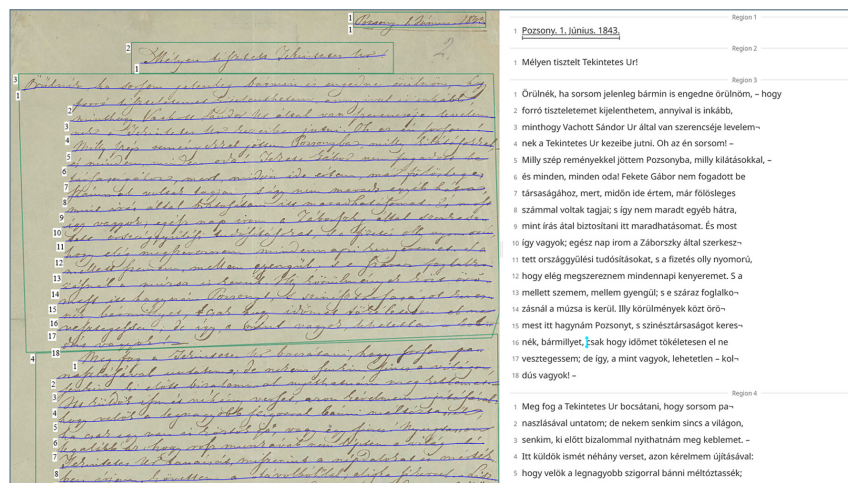 Region 1
1 Pozsony. 1. Június. 1843.
Region 2
1 Mélyen tisztelt Tekintetes Ur!
Region 3
1 Örülnék, ha sorsom jelenleg bármin is engedne örülnöm, – hogy
2 forró tiszteletemet kijelenthetem, annyival is inkább,
3 minthogy Vachott Sándor Ur által van szerencséje levelem¬
4 nek a Tekintetes Ur kezeibe jutni. Oh az én sorsom! –
5 Milly szép reményekkel jöttem Pozsonyba, milly kilátásokkal, –
6 és minden, minden oda! Fekete Gábor nem fogadott be
7 társaságához, mert, midőn ide értem, már fölösleges
8 számmal voltak tagjai; s így nem maradt egyéb hátra,
9 mint írás átal biztosíbani itt maradhatásomat. És most
10 így vagyok; egész nap irom a Záborszky által szerkesz¬
11 tett országgyűlési tudósításokat, s a fizetés olly nyomorú,
12 hogy elég megszereznem mindennapi kenyeremet. S a
13 mellett szemem, mellem gyengül; s e száraz foglalko¬
14 zásnál a múzsa is kerül. Illy körülmények közt örö¬
15 mest itt hagynám Pozsonyt, s szinésztársaságot keres¬
16 nék, bármillyet, csak hogy időmet tökéletesen el ne
17 vesztegessem; de így, a mint vagyok, lehetetlen – kol¬
18 dús vagyok! –
Region 4
1 Meg fog a Tekintetes Ur bocsátani, hogy sorsom pa¬
2 naszlásával untatom; de nekem senkim sincs a világon,
3 senkim, ki előtt bizalommal nyithatnám meg keblemet. –
4 Itt küldök ismét néhány verset, azon kérelmem újításával:
5 hogy velök a legnagyobb szigorral bánni méltóztassék;